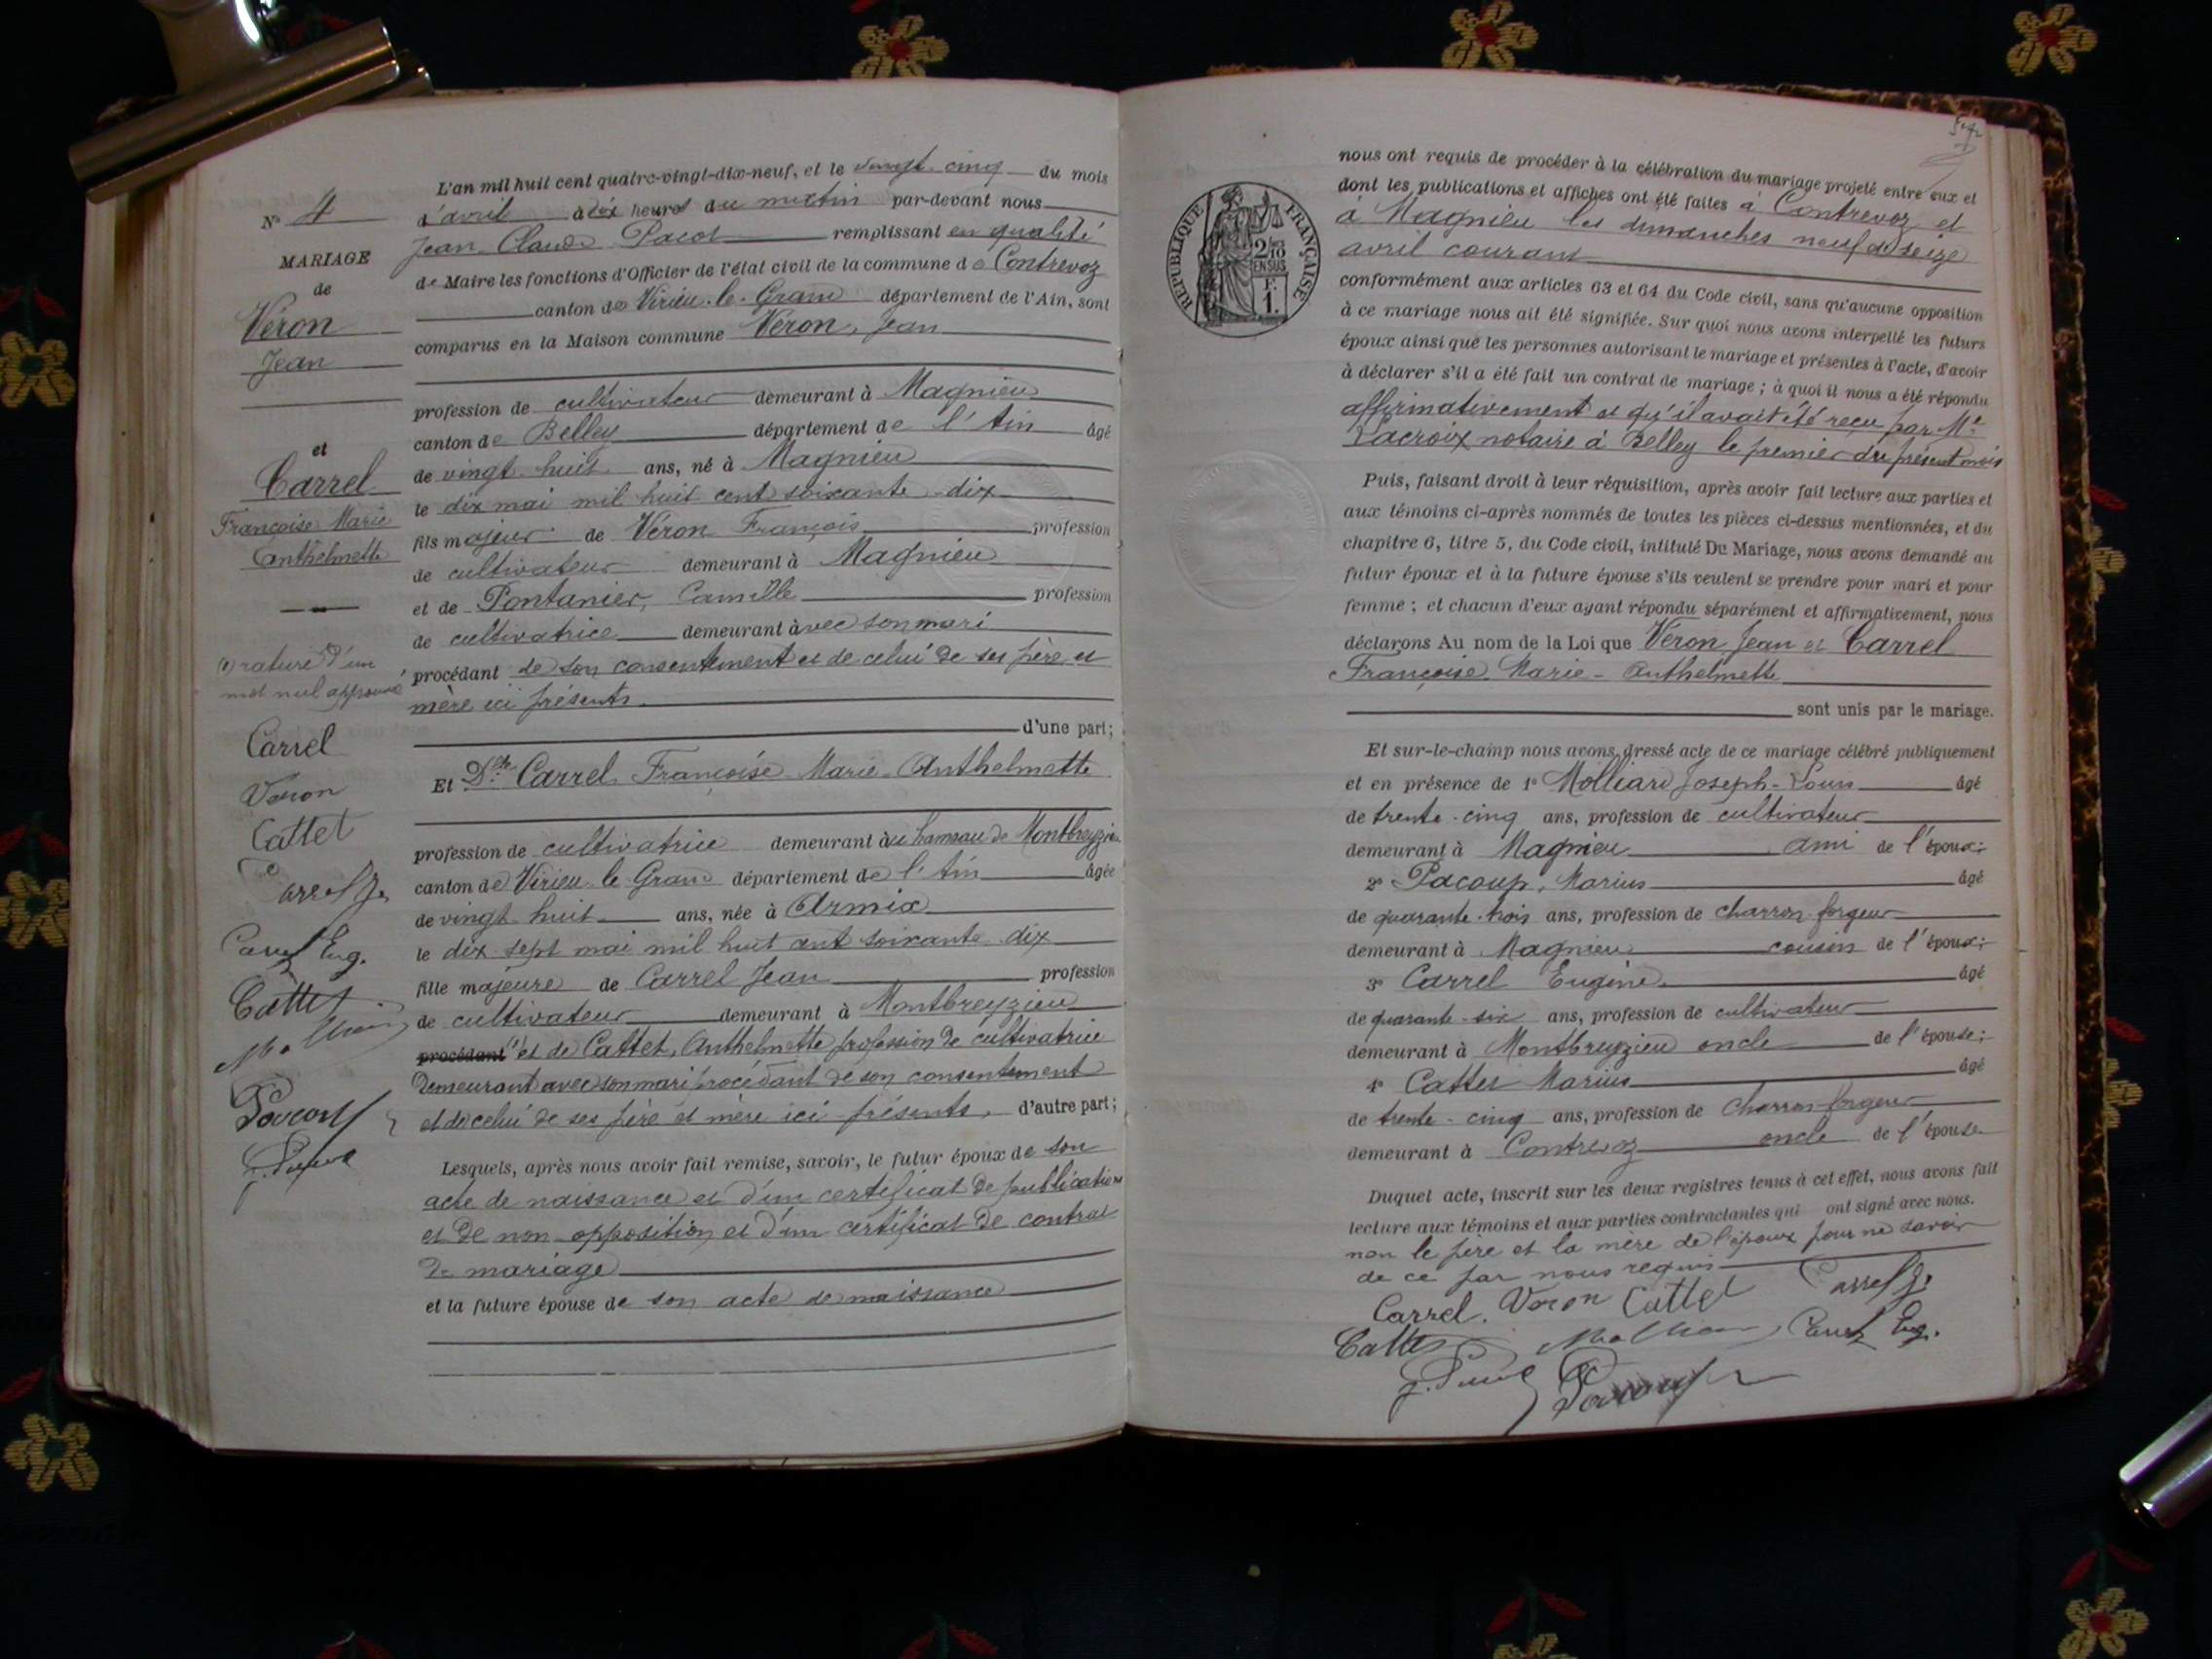 L'an mil huit cent quatre-vingt-dix-neuf, et le vingt-cinq du mois
d'avril à dix heures du matin par-devant nous
Jean Claude Pacot remplissant en qualité
de Maire les fonctions d'Officier de l'état civil de la commune de Contrevoz
canton de Virieu-le-Grand département de l'Ain, sont
comparus en la Maison commune Véron, Jean
profession de cultivateur demeurant à Magnieu
canton de Belley département de l'Ain âgé
de vingt-huit ans, né à Magnieu
le dix mai mil huit cent soixante-dix
fils majeur de Véron François profession
de cultivateur demeurant à Magnieu
et de Pontanier, Camille profession
de cultivatrice demeurant avec son mari
procédant de son consentement et de celui de ses père et
mère ici présents.
d'une part;
Et Dlle Carrel Françoise Marie-Anthelmette
profession de cultivatrice demeurant au hameau de Montbreyzieu
canton de Virieu-le-Grand département de l'Ain âgée
de vingt-huit ans, née à Armix
le dix-sept mai mil huit cent soixante-dix
fille majeure de Carrel Jean profession
de cultivateur demeurant à Montbreyzieu
procédant (1) et de Cattet, Anthelmette profession de cultivatrice
demeurant avec son mari procédant de son consentement
et de celui de ses père et mère ici présents, d'autre part;
Lesquels, après nous avoir fait remise, savoir, le futur époux de son
acte de naissance et d'un certificat de publication
et de non-opposition et d'un certificat de contrat
de mariage
et la future épouse de son acte de naissance
N° 4
MARIAGE
de
Véron
Jean
et
Carrel
Françoise Marie
Anthelmette
(1) rature d'un
mot nul approuvé
Carrel
Veron
Cattet
Carrel J.
Carrel Eug.
Cattet
nous ont requis de procéder à la célébration du mariage projeté entre eux et
dont les publications et affiches ont été faites à Contrevoz et
à Magnieu les dimanches neuf et seize
avril courant
RÉPUBLIQUE FRANÇAISE
2/10
EN SUS
F.
1.
conformément aux articles 63 et 64 du Code civil, sans qu'aucune opposition
à ce mariage nous ait été signifiée. Sur quoi nous avons interpellé les futurs
époux ainsi que les personnes autorisant le mariage et présentes à l'acte, d'avoir
à déclarer s'il a été fait un contrat de mariage; à quoi il nous a été répondu
affirmativement et qu'il avait été reçu par Me
Lacroix notaire à Belley le premier du présent mois
Puis, faisant droit à leur réquisition, après avoir fait lecture aux parties et
aux témoins ci-après nommés de toutes les pièces ci-dessus mentionnées, et du
chapitre 6, titre 5, du Code civil, intitulé Du Mariage, nous avons demandé au
futur époux et à la future épouse s'ils veulent se prendre pour mari et pour
femme; et chacun d'eux ayant répondu séparément et affirmativement, nous
déclarons Au nom de la Loi que Véron Jean et Carrel
Françoise Marie-Anthelmette
sont unis par le mariage.
Et sur-le-champ nous avons dressé acte de ce mariage célébré publiquement
et en présence de 1° Molliard Joseph-Louis âgé
de trente-cinq ans, profession de cultivateur
demeurant à Magnieu ami de l'époux;
2° Pacoup, Marius âgé
de quarante-trois ans, profession de charron forgeur
demeurant à Magnieu cousin de l'époux;
3° Carrel Eugène âgé
de quarante-six ans, profession de cultivateur
demeurant à Montbreyzieu oncle de l'épouse;
4° Cattet Marius âgé
de trente-cinq ans, profession de Charron-forgeur
demeurant à Contrevoz oncle de l'épouse
Duquel acte, inscrit sur les deux registres tenus à cet effet, nous avons fait
lecture aux témoins et aux parties contractantes qui ont signé avec nous.
non le père et la mère de l'époux pour ne savoir
de ce par nous requis
Carrel. Veron Cattet Carrel J.
Cattet Carrel Eug.